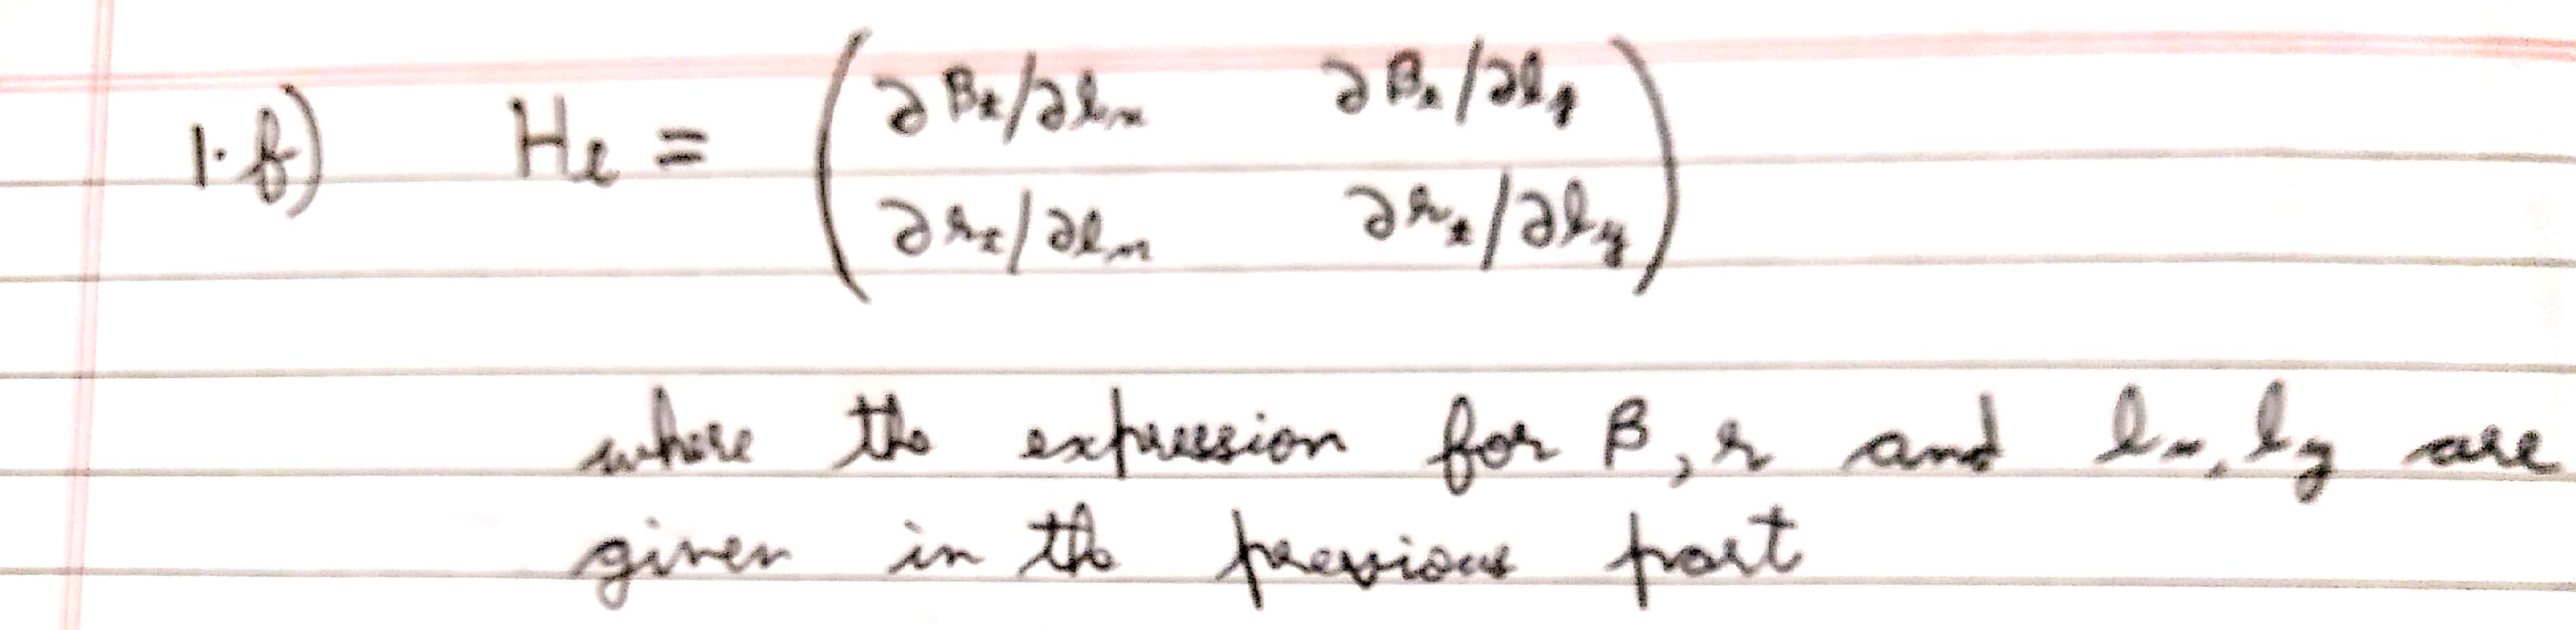 1.f) H_l = ( ∂β_t/∂l_x ∂β_t/∂l_y
∂r_t/∂l_x ∂r_t/∂l_y )
where the expression for β, r and l_x, l_y are
given in the previous part